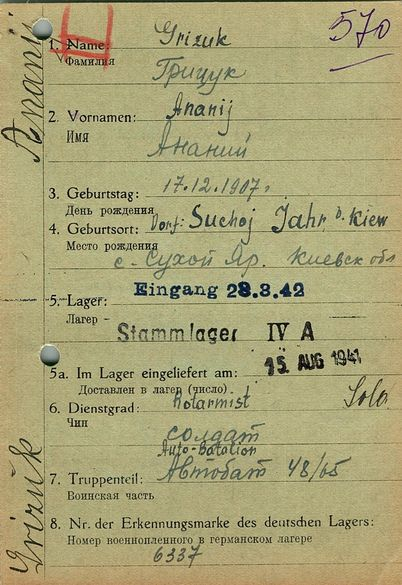 570
1. Name: Grizuk
Фамилия Грицук
2. Vornamen: Ananij
Имя Ананий
3. Geburtstag: 17.12.1907 г.
День рождения
4. Geburtsort: Dorf: Suchoj Jahr, b. Kiew
Место рождения
с. Сухой Яр. Киевск обл
Eingang 28.3.42
5. Lager:
Лагер
Stammlager IV A
15. AUG 1941
5a. Im Lager eingeliefert am:
Доставлен в лагер (число)
6. Dienstgrad: Rotarmist
Чин
солдат
Auto-Batalion
7. Truppenteil: Автобат 48/65
Воинская часть
8. Nr. der Erkennungsmarke des deutschen Lagers:
Номер военнопленного в германском лагере
6337
Grizuk Ananij